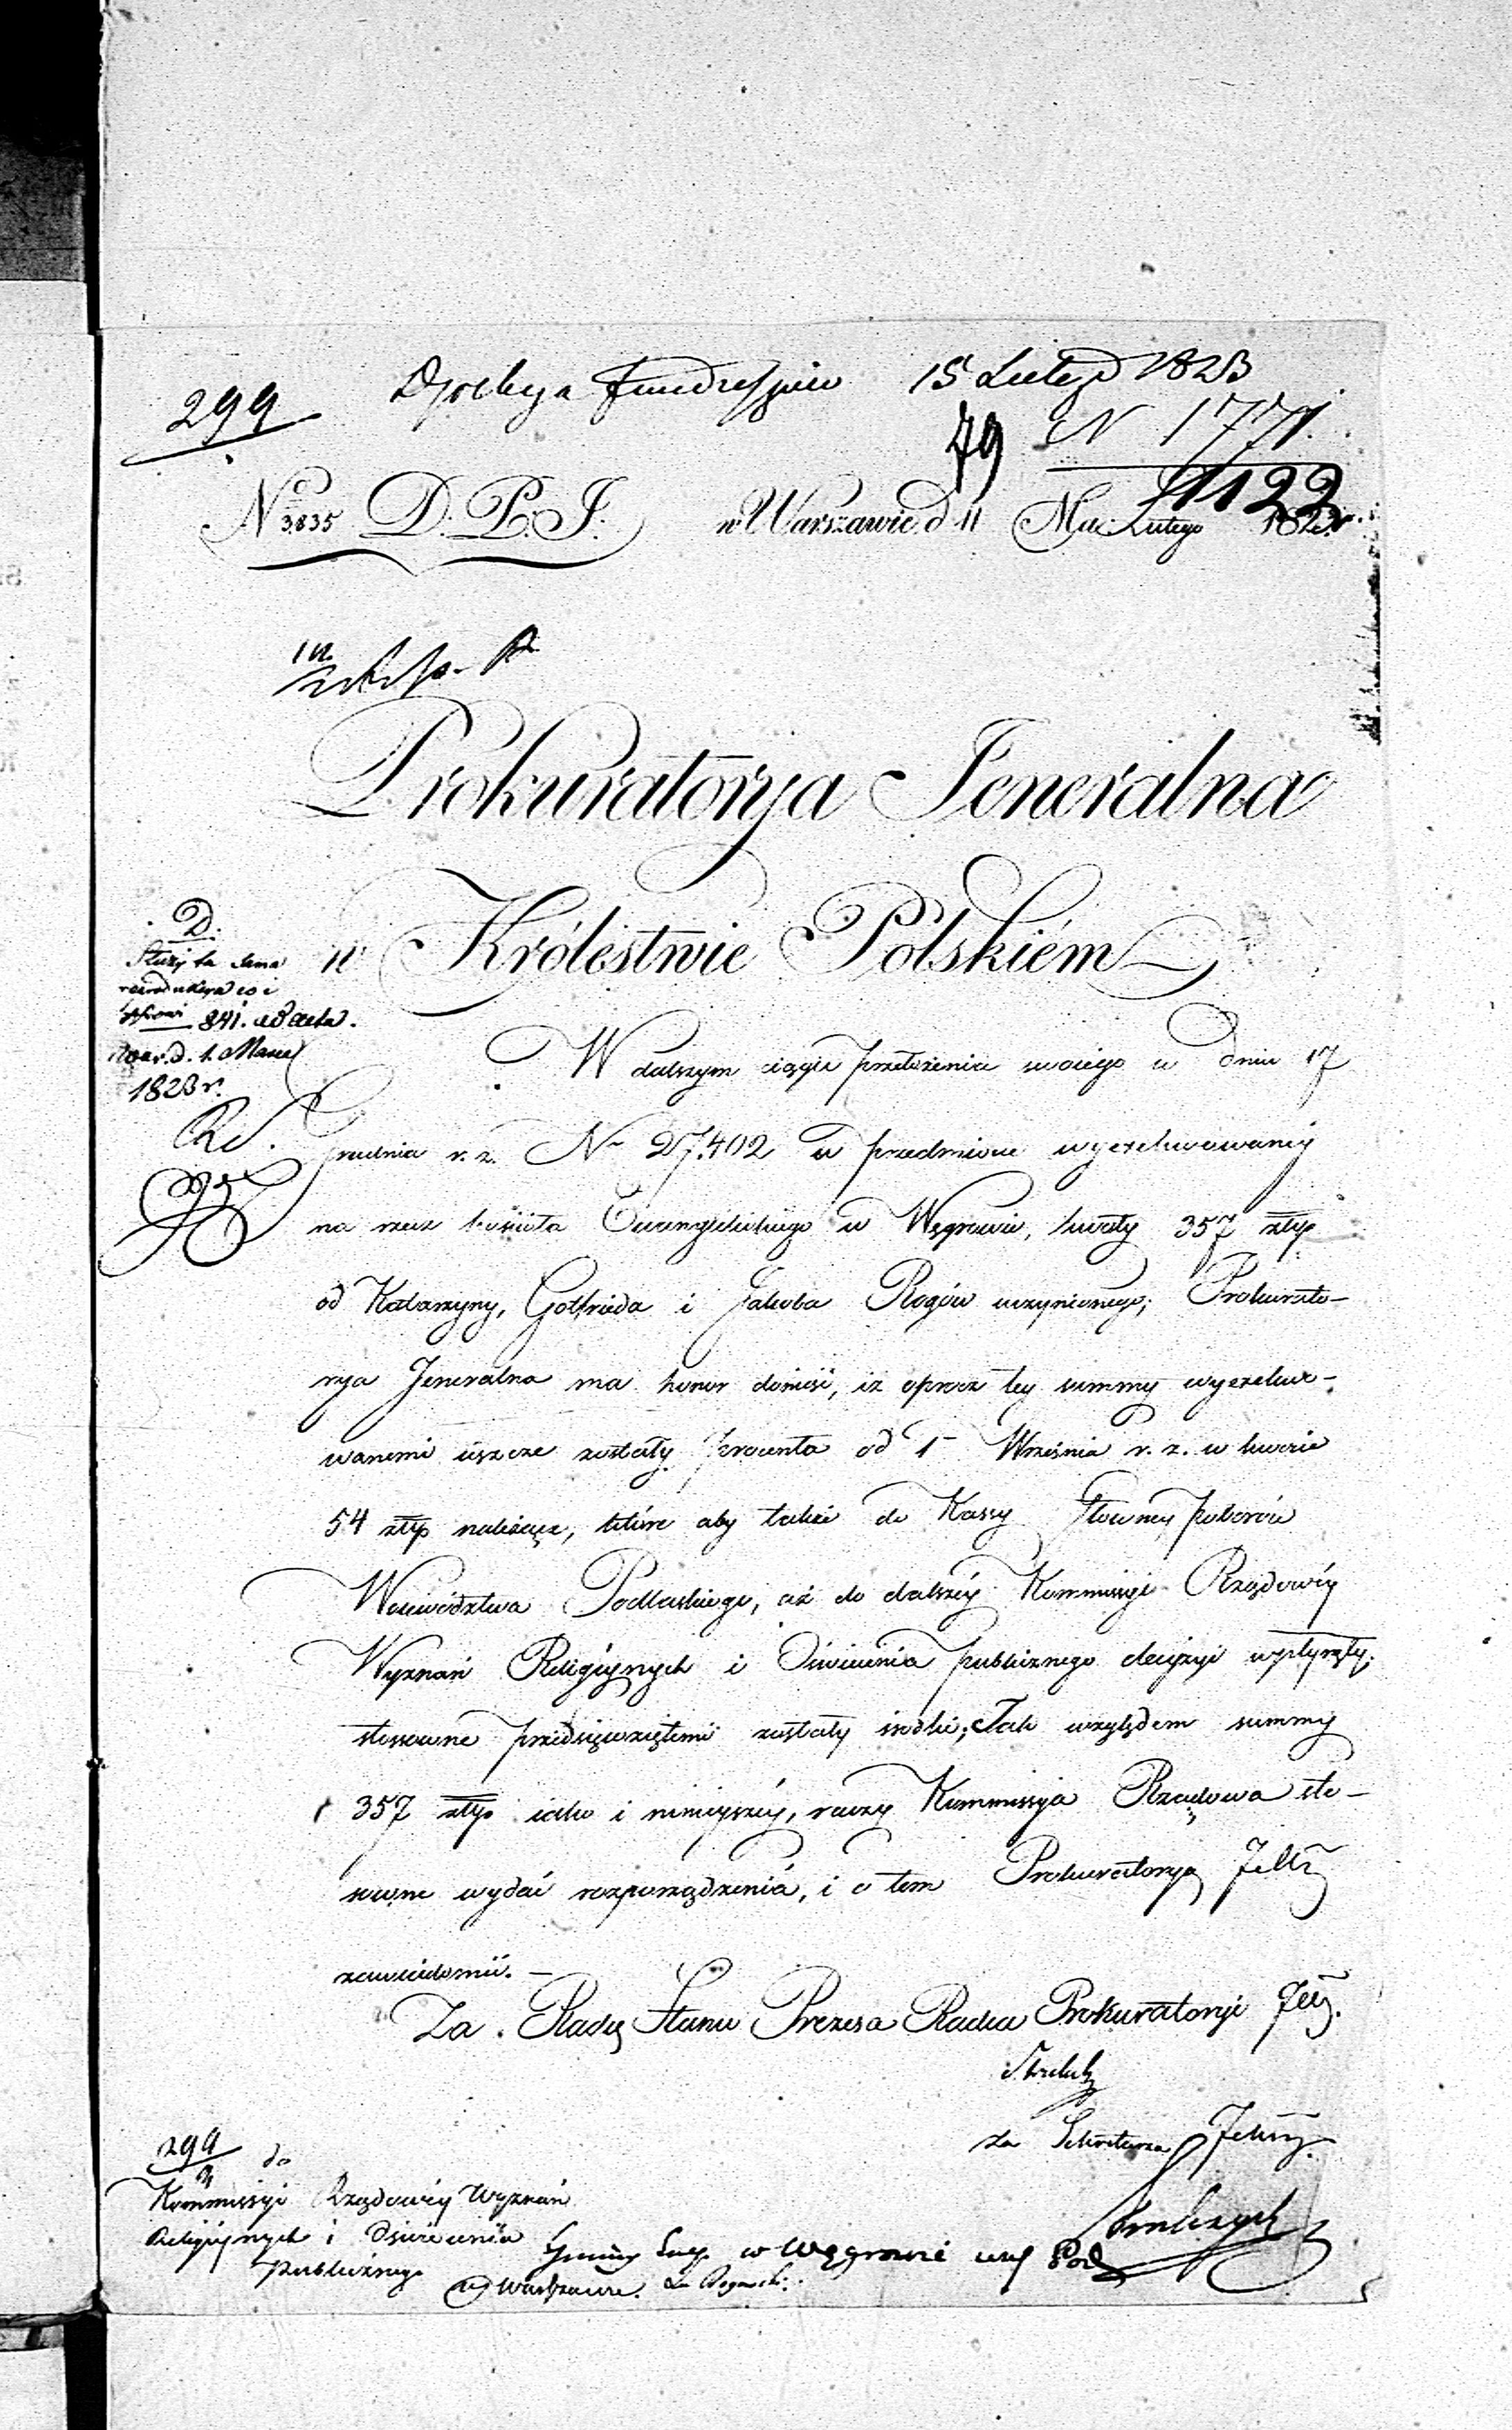 299
15 Lutego 1823
79 N 1771.
1122
No 3835 D. P. J. w Warszawie d. 11 Mca Lutego 182
Prokuratorya Jeneralna
w Królestwie Polskiém
D.
Służy ta sama
841. ad acta.
War. d. 1. Marca
1823 r.
W dalszym ciągu przełożenia swoiego w dniu 17
Grudnia r. z. No 27.402 w przedmiocie wyexekwowaney
na rzecz kościoła Ewangelickiego w Węgrowie, kwoty 357 złtp
od Katarzyny, Gotfrieda i Jakoba Rogów uczynionego; Prokurato-
rya Jeneralna ma honor donieść, iż oprócz tey summy wyexekwo-
wanemi ieszcze zostały procenta od 1 Września r. z. w kwocie
54 złtp należące, które aby także do Kassy Głowney poborów
Woiewództwa Podlaskiego, aż do dalszéy Kommissyi Rządowéy
Wyznań Religiynych i Oświecenia publicznego decyzyi wpłynęły,
stosowne przedsięwziętemi zostały środki; Tak względem summy
357 złtp iako i ninieyszéy, raczy Kommissya Rządowa sto-
sowne wydać rozporządzenia, i o tem Prokuratoryą Jeltą
zawiadomić. —
Za Radcę Stanu Prezesa Radca Prokuratoryi Jeltéy.
za Sekretarza Jelnego
299
do
Kommissyi Rządowéy Wyznań
Religiynych i Oświecenia
Publicznego
w Warszawie.
Gminy Ewg. w Węgrowie Wdz Pod